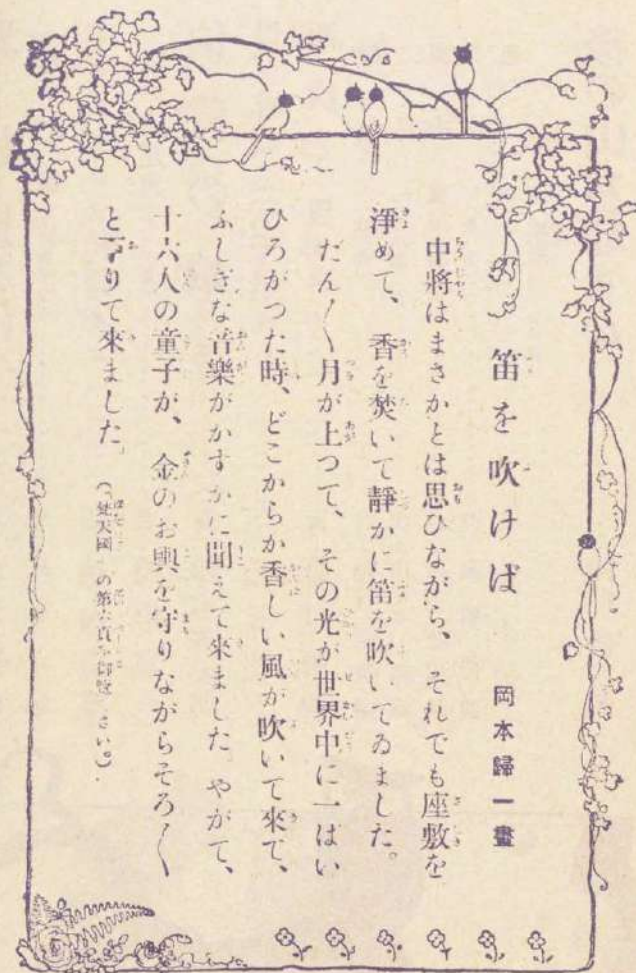 笛を吹けば 岡本歸一畫
中將はまさかとは思ひながら、それでも座敷を
淨めて、香を焚いて靜かに笛を吹いてゐました。
だん〱月が上つて、その光が世界中に一ぱい
ひろがつた時、どこからか香しい風が吹いて來て、
ふしぎな音樂がかすかに聞えて來ました。やがて、
十六人の童子が、金のお輿を守りながらそろ〱
と下りて來ました。(「梵天國」の第六頁を御覽下さい。)